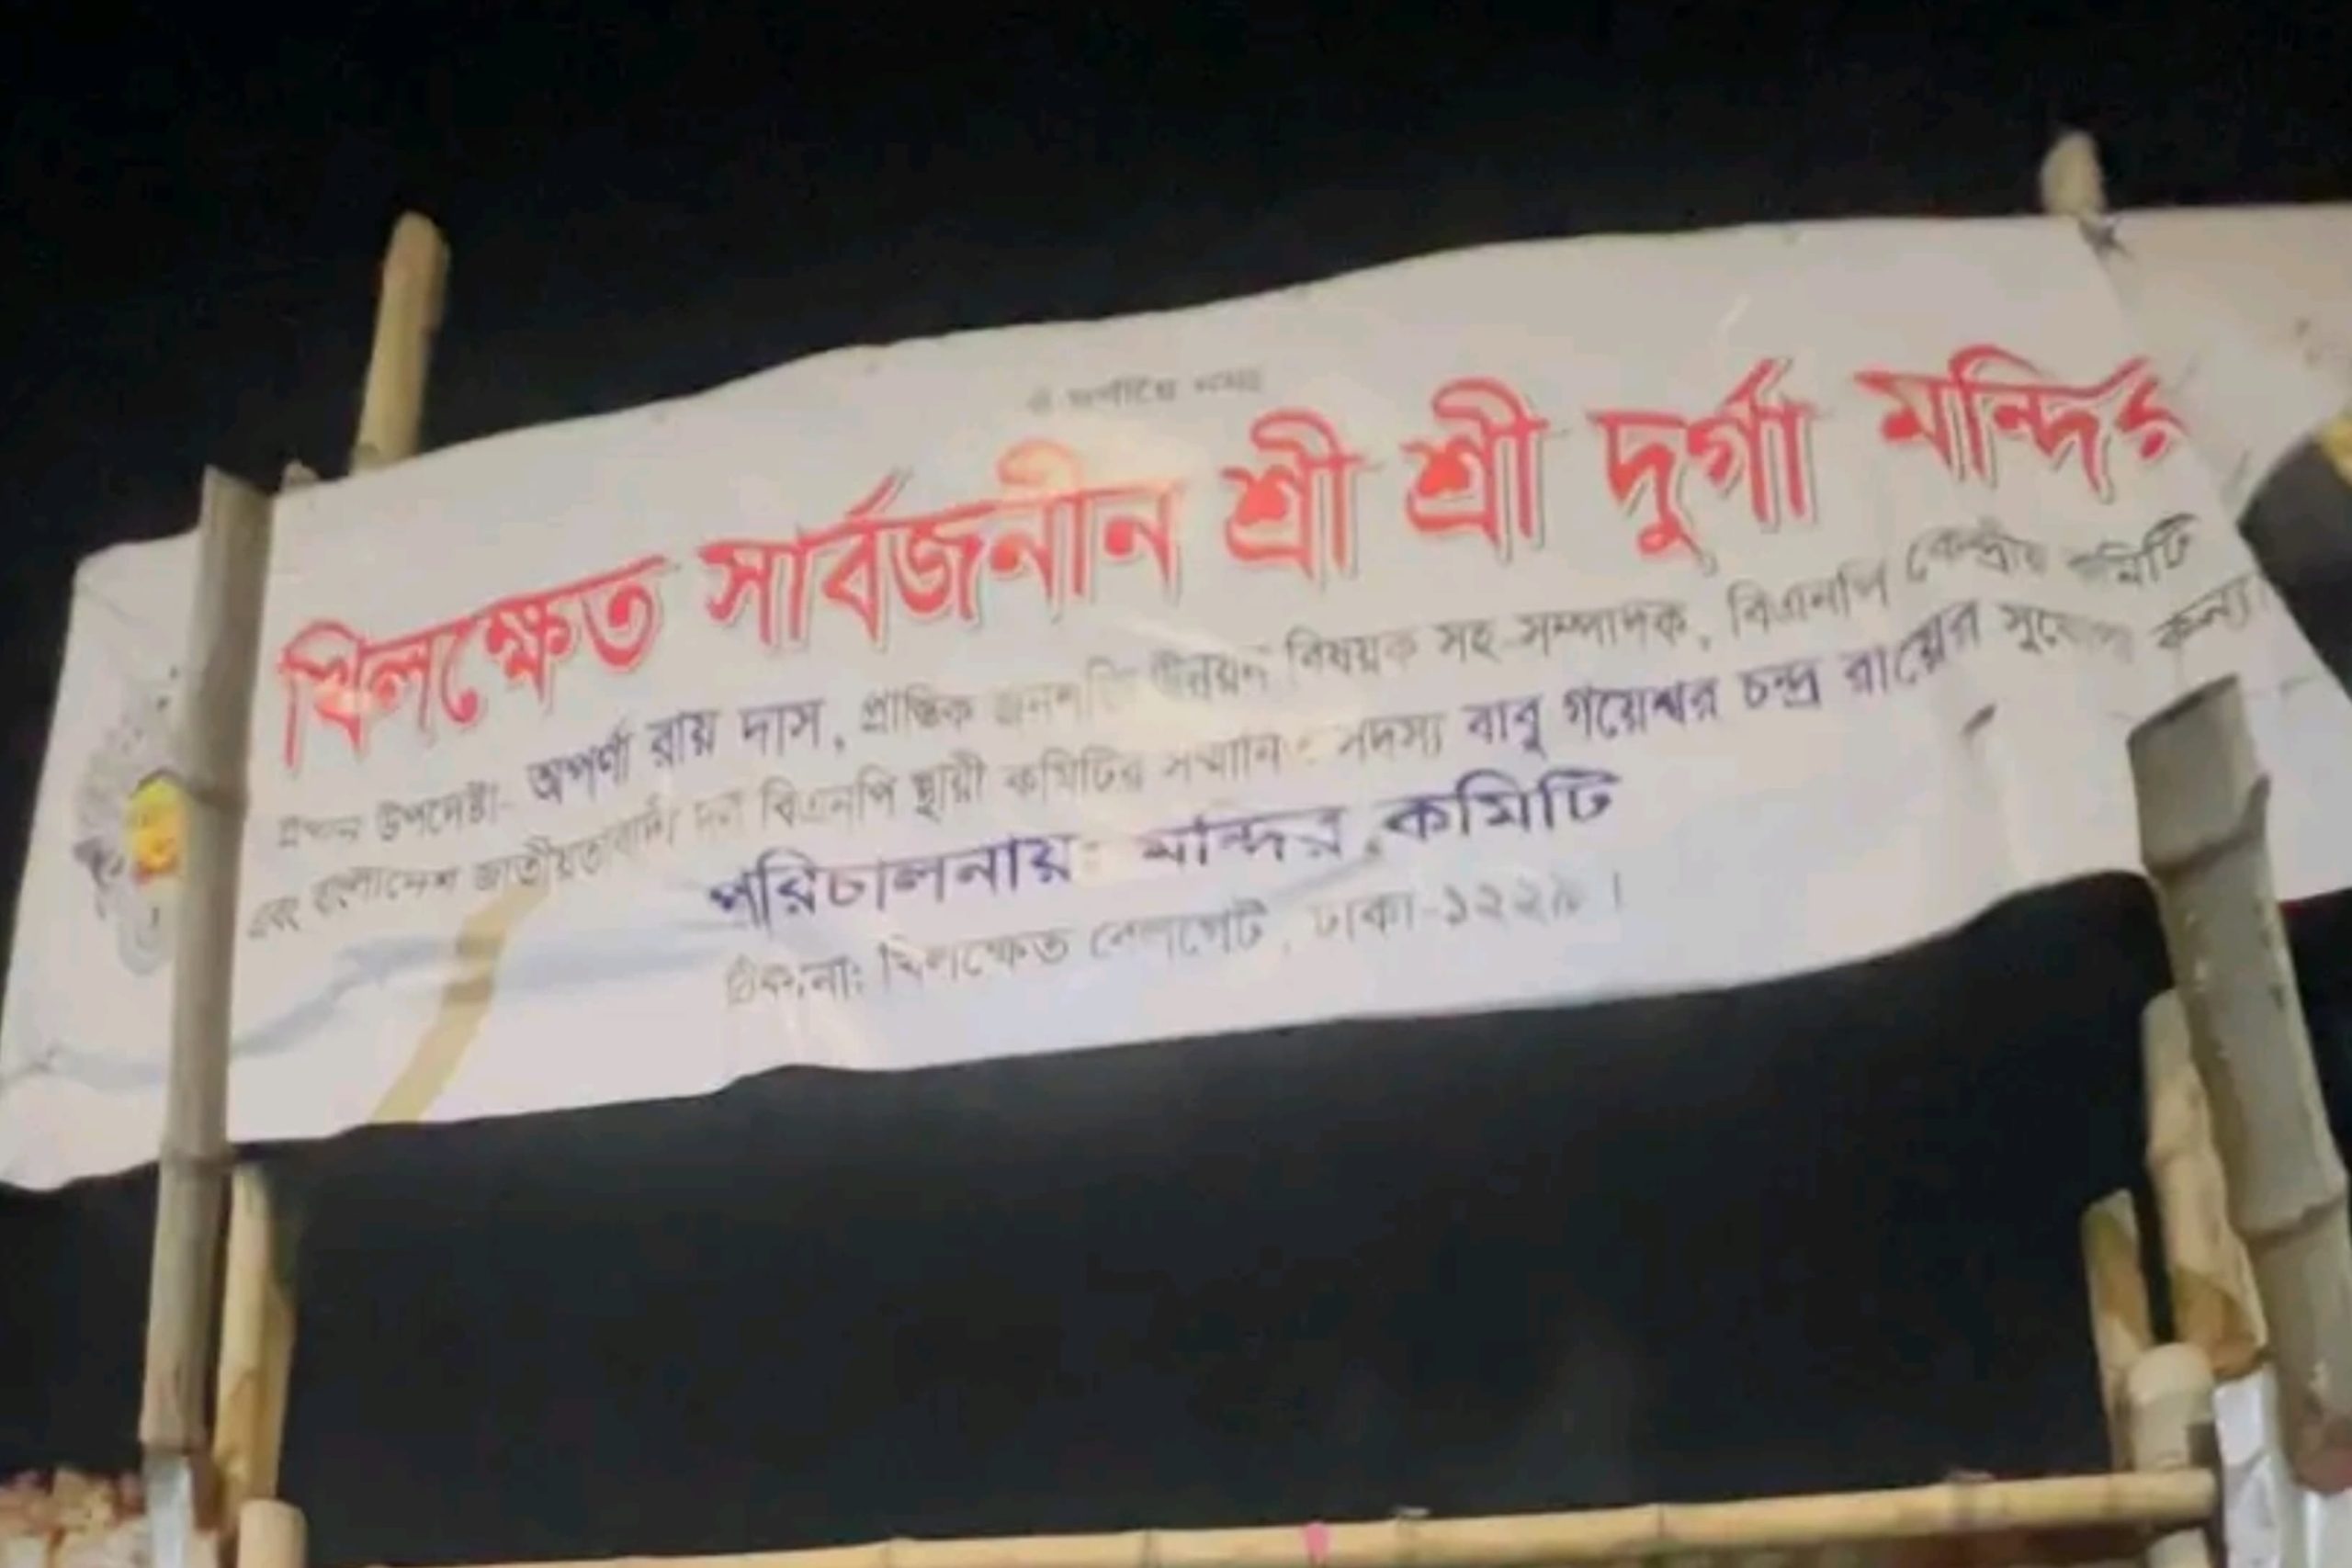 খিলক্ষেত সার্বজনীন শ্রী শ্রী দুর্গা মন্দির
প্রধান উপদেষ্টা- অপর্ণা রায় দাস, প্রান্তিক জনশক্তি উন্নয়ন বিষয়ক সহ-সম্পাদক, বিএনপি কেন্দ্রীয় কমিটি
এবং বাংলাদেশ জাতীয়তাবাদী দল বিএনপি স্থায়ী কমিটির সম্মানিত সদস্য বাবু গয়েশ্বর চন্দ্র রায়ের সুযোগ্য কন্যা।
পরিচালনায়: মন্দির কমিটি
ঠিকানা: খিলক্ষেত রেলগেট, ঢাকা-১২২৯।